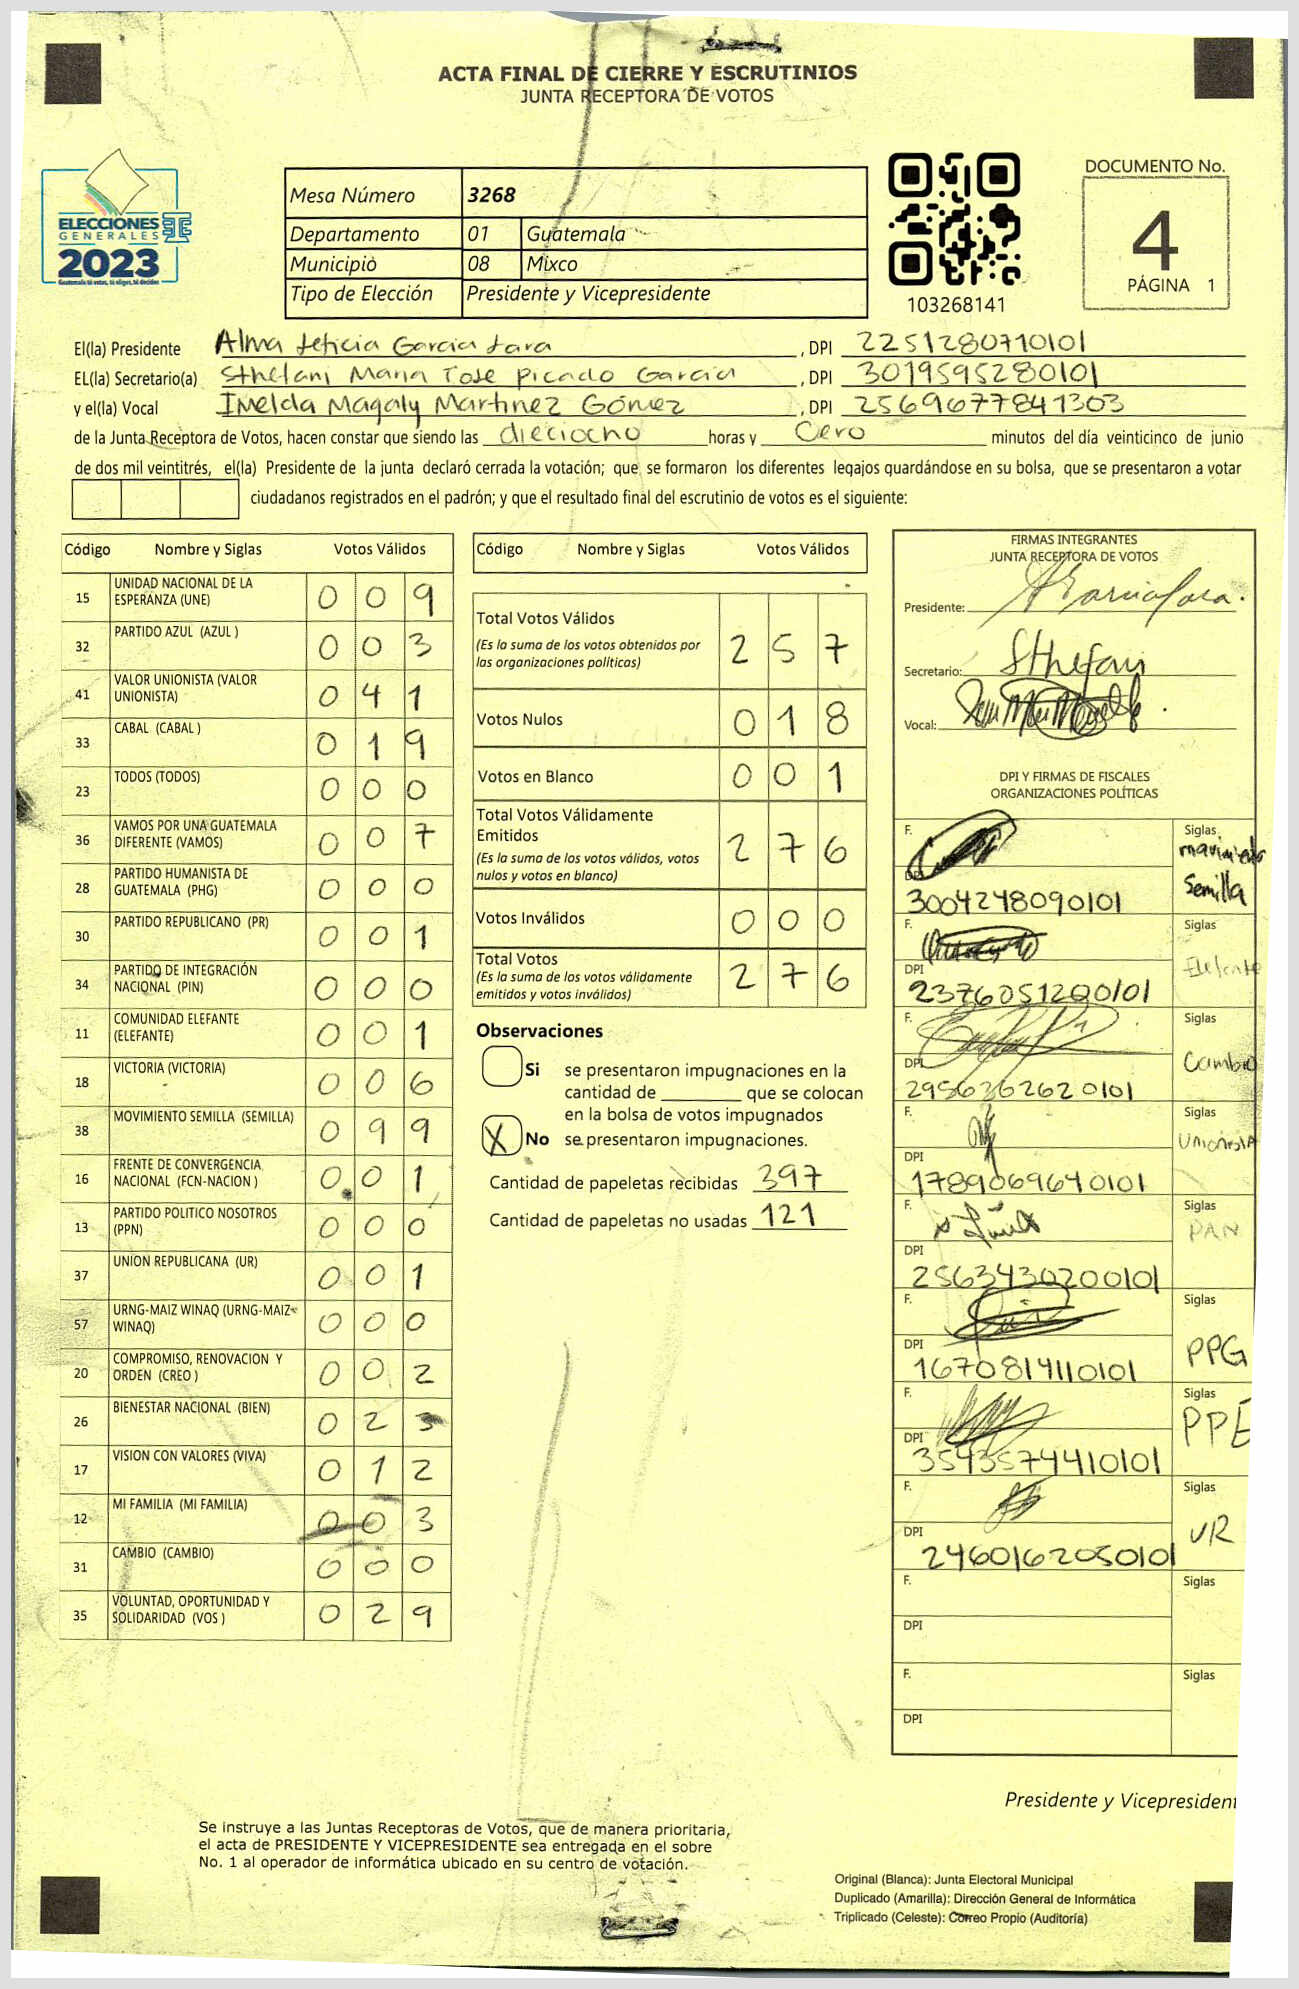 ACTA FINAL DE CIERRE Y ESCRUTINIOS
JUNTA RECEPTORA DE VOTOS
ELECCIONES
GENERALES
2023
Guatemala tú votas, tú eliges, tú decides
TSE
Mesa Número 3268
Departamento 01 Guatemala
Municipio 08 Mixco
Tipo de Elección Presidente y Vicepresidente
103268141
DOCUMENTO No.
4
PÁGINA 1
El(la) Presidente Alma Leticia Garcia Lara, DPI 2251280710101
EL(la) Secretario(a) Sthefani Maria Jose Picado Garcia, DPI 3019595280101
y el(la) Vocal Imelda Magaly Martinez Gómez, DPI 2569677841303
de la Junta Receptora de Votos, hacen constar que siendo las dieciocho horas y Cero minutos del día veinticinco de junio
de dos mil veintitrés, el(la) Presidente de la junta declaró cerrada la votación; que se formaron los diferentes legajos guardándose en su bolsa, que se presentaron a votar
ciudadanos registrados en el padrón; y que el resultado final del escrutinio de votos es el siguiente:
Código Nombre y Siglas Votos Válidos
15 UNIDAD NACIONAL DE LA ESPERANZA (UNE) 0 0 9
32 PARTIDO AZUL (AZUL ) 0 0 3
41 VALOR UNIONISTA (VALOR UNIONISTA) 0 4 1
33 CABAL (CABAL ) 0 1 9
23 TODOS (TODOS) 0 0 0
36 VAMOS POR UNA GUATEMALA DIFERENTE (VAMOS) 0 0 7
28 PARTIDO HUMANISTA DE GUATEMALA (PHG) 0 0 0
30 PARTIDO REPUBLICANO (PR) 0 0 1
34 PARTIDO DE INTEGRACIÓN NACIONAL (PIN) 0 0 0
11 COMUNIDAD ELEFANTE (ELEFANTE) 0 0 1
18 VICTORIA (VICTORIA) 0 0 6
38 MOVIMIENTO SEMILLA (SEMILLA) 0 9 9
16 FRENTE DE CONVERGENCIA NACIONAL (FCN-NACION ) 0 0 1
13 PARTIDO POLITICO NOSOTROS (PPN) 0 0 0
37 UNION REPUBLICANA (UR) 0 0 1
57 URNG-MAIZ WINAQ (URNG-MAIZ-WINAQ) 0 0 0
20 COMPROMISO, RENOVACION Y ORDEN (CREO ) 0 0 2
26 BIENESTAR NACIONAL (BIEN) 0 2 3
17 VISION CON VALORES (VIVA) 0 1 2
12 MI FAMILIA (MI FAMILIA) 0 0 3
31 CAMBIO (CAMBIO) 0 0 0
35 VOLUNTAD, OPORTUNIDAD Y SOLIDARIDAD (VOS ) 0 2 9
Código Nombre y Siglas Votos Válidos
Total Votos Válidos 2 5 7
(Es la suma de los votos obtenidos por
las organizaciones políticas)
Votos Nulos 0 1 8
Votos en Blanco 0 0 1
Total Votos Válidamente
Emitidos 2 7 6
(Es la suma de los votos válidos, votos
nulos y votos en blanco)
Votos Inválidos 0 0 0
Total Votos 2 7 6
(Es la suma de los votos válidamente
emitidos y votos inválidos)
Observaciones
Si se presentaron impugnaciones en la
cantidad de ________ que se colocan
en la bolsa de votos impugnados
X No se presentaron impugnaciones.
Cantidad de papeletas recibidas 397
Cantidad de papeletas no usadas 121
FIRMAS INTEGRANTES
JUNTA RECEPTORA DE VOTOS
Presidente:
Secretario: Sthefani
Vocal:
DPI Y FIRMAS DE FISCALES
ORGANIZACIONES POLÍTICAS
F. Siglas movimiento Semilla
DPI 3004248090101
F. Siglas Elefante
DPI 2376051200101
F. Siglas Cambio
DPI 2956362620101
F. Siglas Unionista
DPI 1789069640101
F. Siglas PAN
DPI 2563430200101
F. Siglas PPG
DPI 1670814110101
F. Siglas PPE
DPI 3543574410101
F. Siglas UR
DPI 2460162050101
F. Siglas
DPI
F. Siglas
DPI
Presidente y Vicepresident
Se instruye a las Juntas Receptoras de Votos, que de manera prioritaria,
el acta de PRESIDENTE Y VICEPRESIDENTE sea entregada en el sobre
No. 1 al operador de informática ubicado en su centro de votación.
Original (Blanca): Junta Electoral Municipal
Duplicado (Amarilla): Dirección General de Informática
Triplicado (Celeste): Correo Propio (Auditoría)